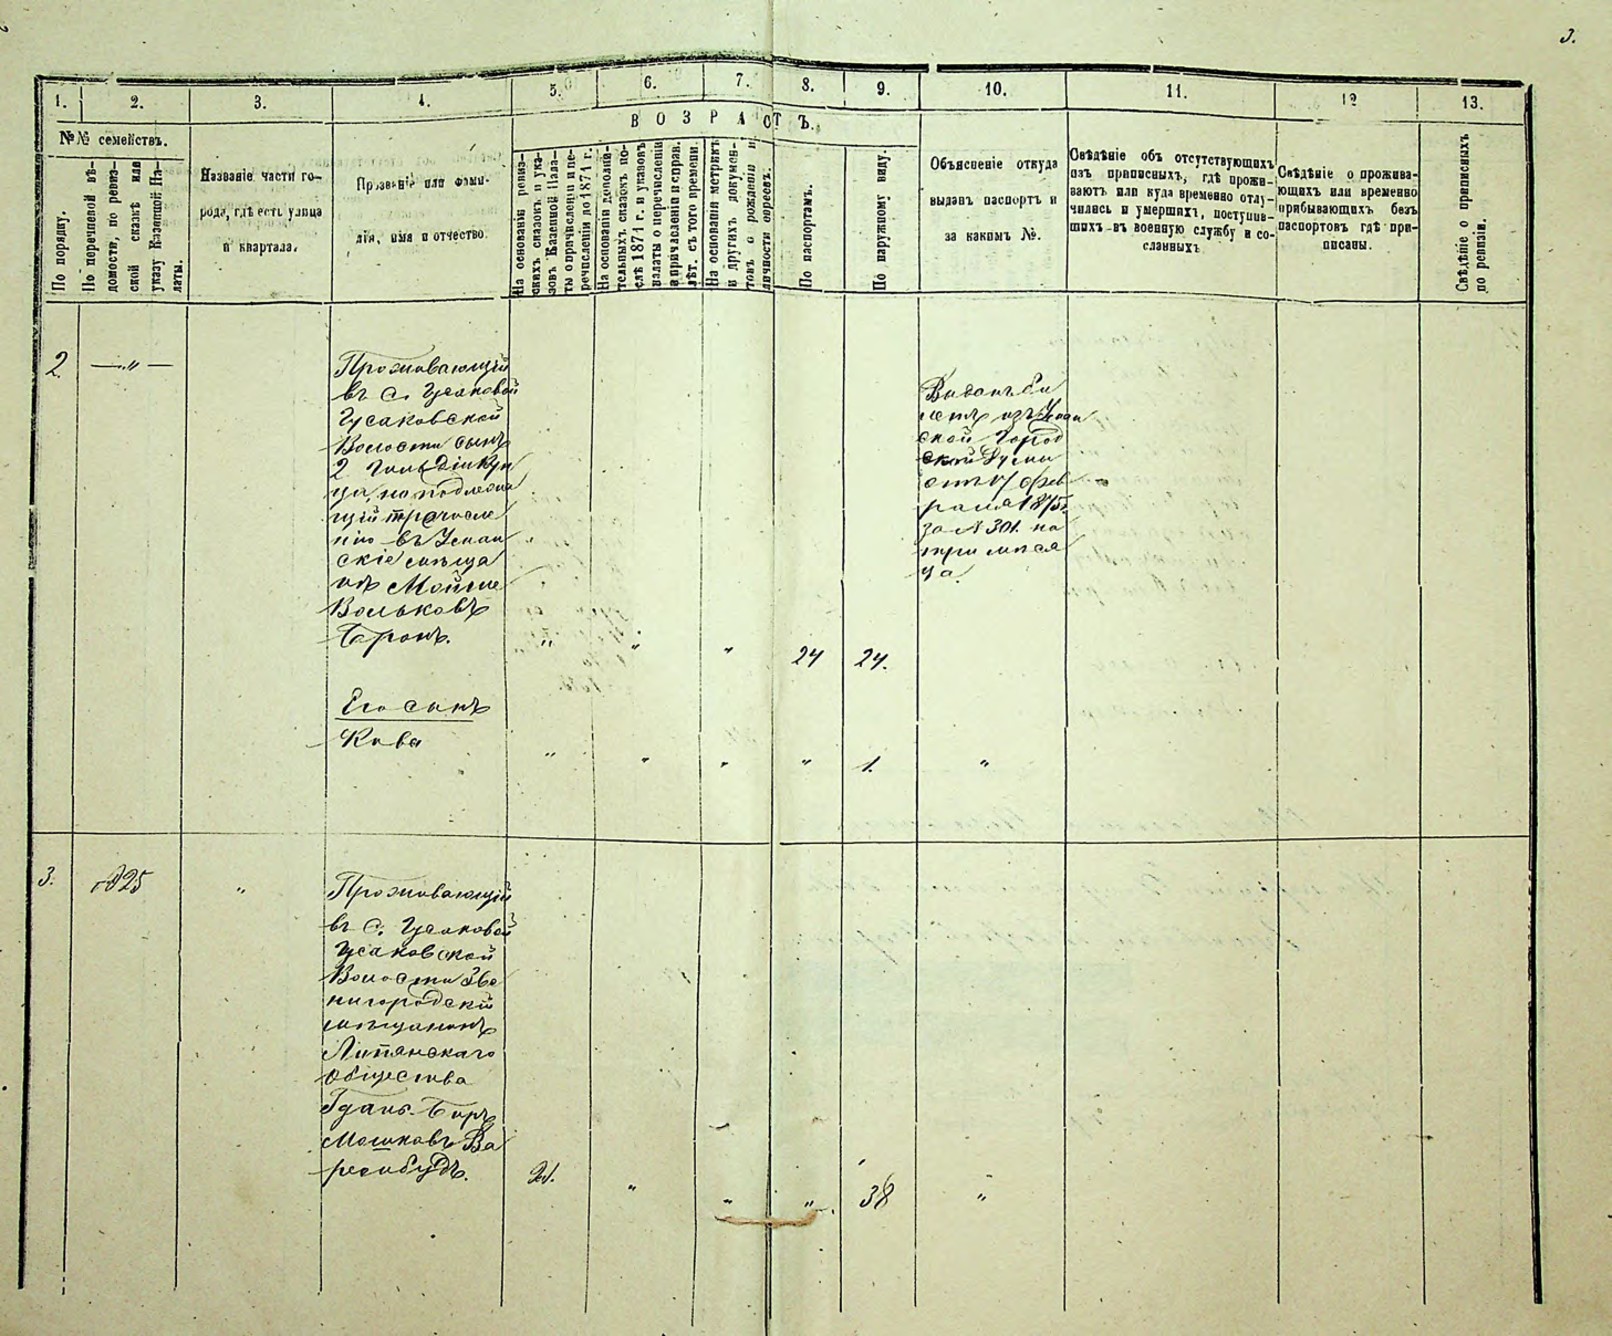 3.
1. 2. 3. 4. 5. 6. 7. 8. 9. 10. 11. 12 13.
№№ семействъ.
ВОЗРАСТЪ.
По порядку.
По перечневой вѣ-
домости, по ревиз-
ской сказкѣ или
указу Казенной Па-
латы.
Названіе части го-
рода, гдѣ есть улица
и квартала.
Прозваніе или фами-
лія, имя и отчество.
На основаніи ревиз-
скихъ сказокъ и ука-
зовъ Казенной Пала-
ты о причислени и пе-
речислени до 1874 г.
На основаніи дополни-
тельныхъ сказокъ по-
слѣ 1874 г. и указовъ
палаты о перечислени
и причисленіи и справ.
лѣт. съ того времени.
На основаніи метрикъ
и другихъ докумен-
товъ о рожденіи и
личности опросвъ.
По паспортамъ.
По наружному виду.
Объясненіе откуда
выданъ паспортъ и
за какимъ №.
Свѣдѣніе объ отсутствующихъ
изъ приписныхъ, гдѣ прожи-
ваютъ или куда временно отлу-
чились и умершихъ, поступив-
шихъ въ военную службу и со-
сланныхъ
Свѣдѣніе о прожива-
ющихъ или временно
прибывающихъ безъ
паспортовъ гдѣ при-
писаны.
Свѣдѣніе о приписныхъ
по ревизіи.
2. —"—
Проживающій
въ с. Гусаковой
Гусаковской
Волости сынъ
2 Гильдіи Куп
ца, но подлежа
щій причисле
нію въ Уман
скіе мѣща
не Мойше
Вольковъ
Баронъ. " " " 24 24.
Выданъ би
летъ изъ Уман
ской Город
ской Думы
отъ 17 фев
раля 1875 г.
за № 301. на
три мѣся
ца.
Его сынъ
Кива " " " " 1. "
3. №25 "
Проживающій
въ с. Гусаковой
Гусаковской
Волости Зве
нигородскій
мѣщанинъ
Лисянскаго
общества
Гдаль-Беръ
Мошковъ Ва
рсабудъ. 21. " " " 38 "